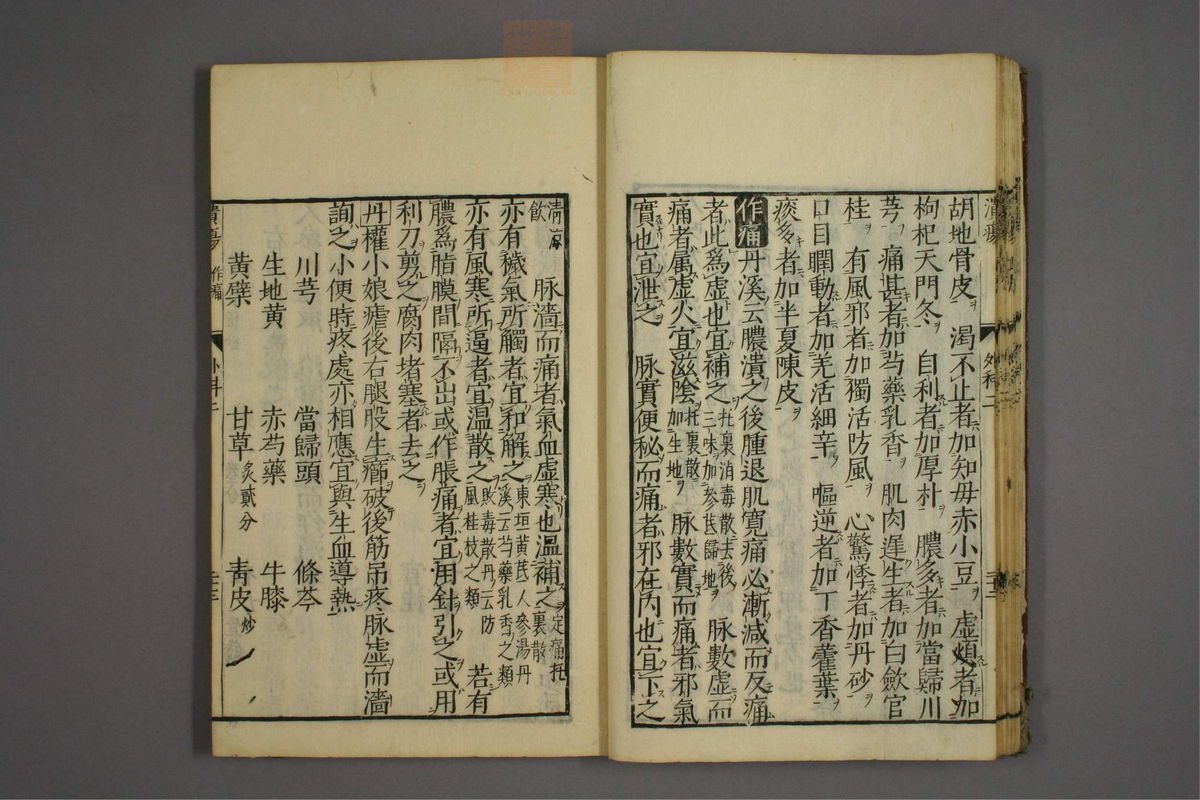 胡地骨皮　渴不止者加知毋赤小豆　虛煩者加
枸杞天門冬　自利者加厚朴　膿多者加當歸川
芎　痛甚者加芍藥乳香　肌肉遲生者加白歛官
桂　有風邪者加獨活防風　心驚悸者加丹砂
口目瞤動者加羌活細辛　嘔逆者加丁香藿葉
痰多者加半夏陳皮
作痛丹溪云膿潰之後腫退肌寬痛必漸減而反痛
者此爲虛也宜補之托裏消毒散去後三味加參芪歸地　脉數虛而
痛者属虛火宜滋陰托裏散加生地　脉數實而痛者邪氣
實也宜泄之　脉實便秘而痛者邪在內也宜下之
清凉飲　脉濇而痛者氣血虛寒也温補之定痛托裏散
亦有穢氣所觸者宜和解之東垣黃芪人參湯丹溪云芍藥乳香之類
亦有風寒所逼者宜温散之敗毒散丹云防風桂枝之類　若有
膿爲脂膜間隔不出或作脹痛者宜用針引之或用
利刀剪之腐肉堵塞者去之
丹權小娘瘧後右腿股生癤破後筋吊疼脉虛而濇
詢之小便時疼處亦相應宜與生血導熱
川芎　當歸頭　條芩
生地黃　赤芍藥　牛膝
黃檗　甘草炙貳分　青皮炒
潰瘍　外科二
潰瘍　作痛　外科二